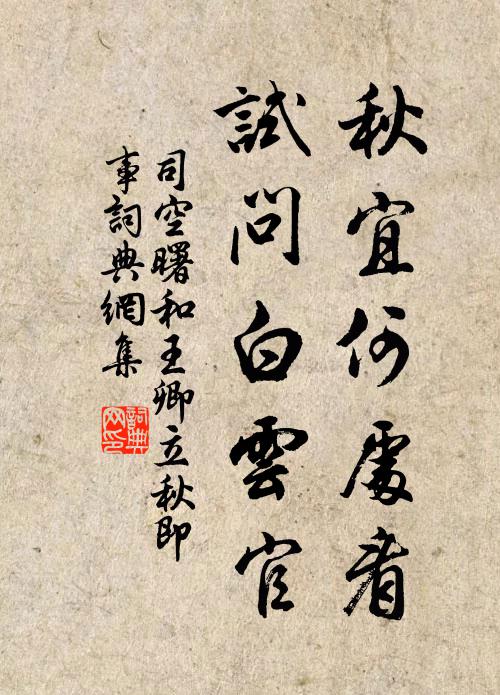 秋宜何處看
試問白雲官
司空曙和王卿立秋即
事詞典網集
詞典
网印